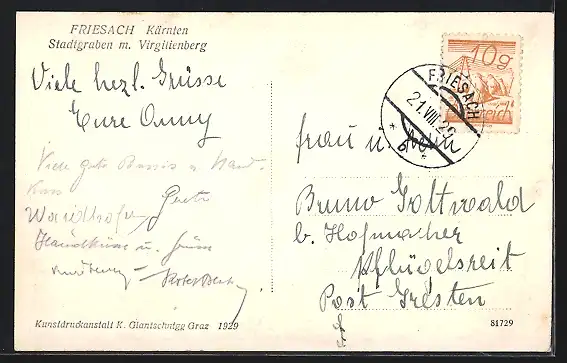 FRIESACH Kärnten
Stadtgraben m. Virgilienberg
Viele hezl. Grüsse
Eure Anny
Viele gute Bussis u. Hand-
Waidhofen
Handküsse u.
Kunstdruckanstalt K. Glantschnigg Graz 1929
10g.
FRIESACH
21.VIII.29
* b *
Frau u. Herrn
Bruno Gottwald
b. Hofmacher
Pflügelsreit
Post Gresten
81729